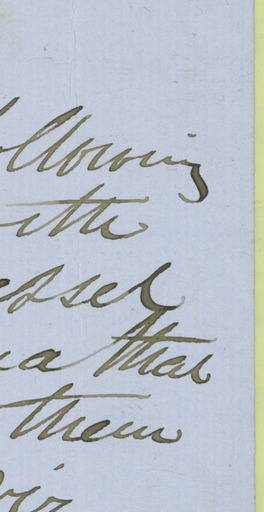 ollowing
ith
essel
a that
them